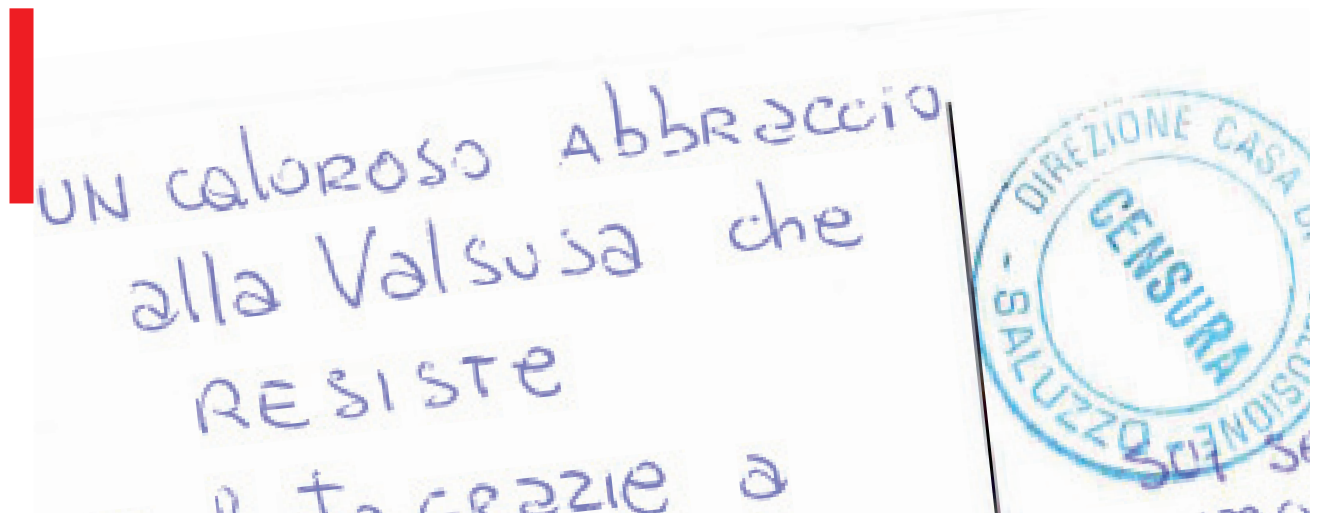 UN caloroso Abbraccio
alla Valsusa che
RESISTE
grazie a
DIREZIONE CASA
CENSURA
- SALUZZO